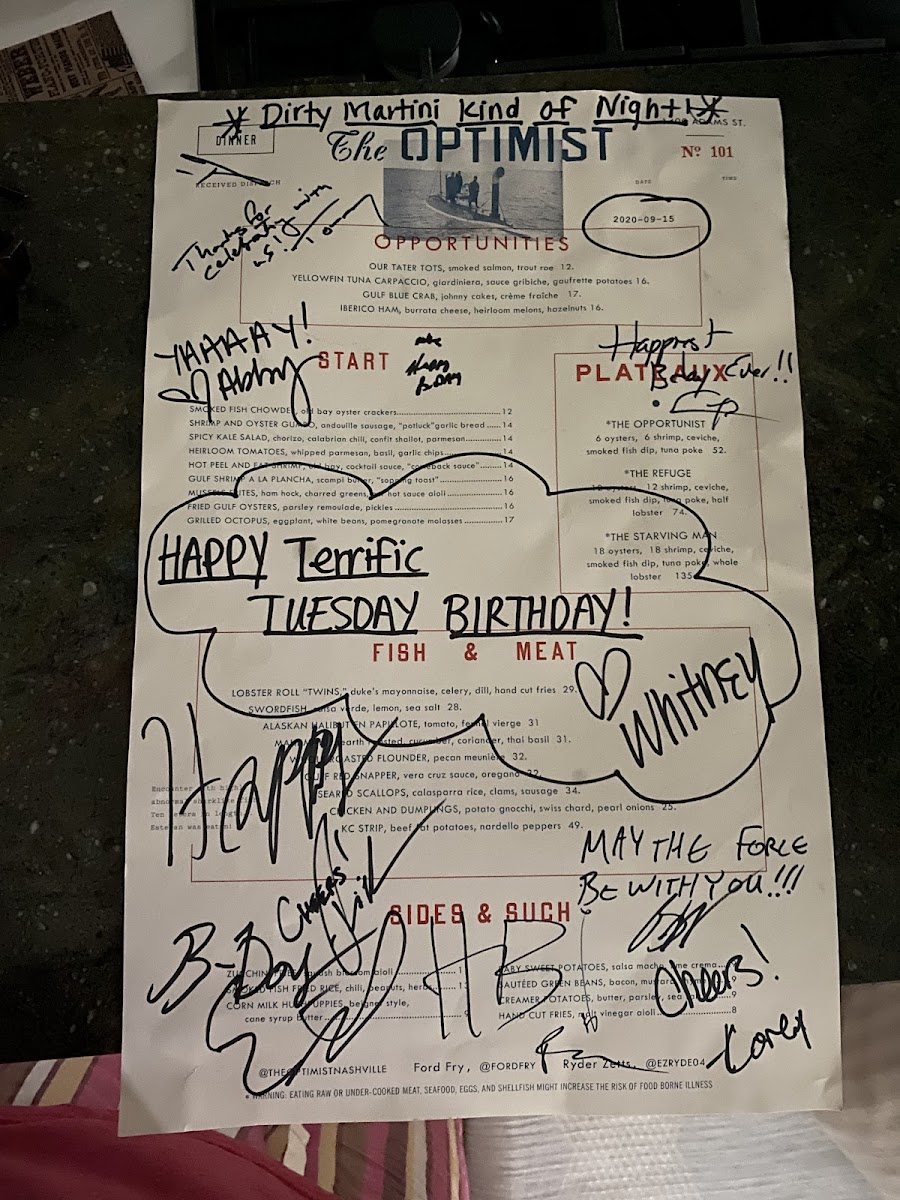 * Dirty Martini Kind of Night! *
ADAMS ST.
DINNER
The OPTIMIST
Nº 101
RECEIVED DISPATCH
DATE
TIME
2020-09-15
Thanks for
celebrating with
us! Tom
OPPORTUNITIES
OUR TATER TOTS, smoked salmon, trout roe 12.
YELLOWFIN TUNA CARPACCIO, giardiniera, sauce gribiche, gaufrette potatoes 16.
GULF BLUE CRAB, johnny cakes, crème fraîche 17.
IBERICO HAM, burrata cheese, heirloom melons, hazelnuts 16.
YAAAAY!
Abby
START
Happy
B-DAY
Happiest
Bday Ever!!
PLATEAUX
SMOKED FISH CHOWDER, old bay oyster crackers 12
SHRIMP AND OYSTER GUMBO, andouille sausage, "potluck" garlic bread 14
SPICY KALE SALAD, chorizo, calabrian chili, confit shallot, parmesan 14
HEIRLOOM TOMATOES, whipped parmesan, basil, garlic chips 14
HOT PEEL AND EAT SHRIMP, old bay, cocktail sauce, "comeback sauce" 14
GULF SHRIMP A LA PLANCHA, scampi butter, "sopping toast" 16
MUSSELS FRITES, ham hock, charred greens, hot sauce aioli 16
FRIED GULF OYSTERS, parsley remoulade, pickles 16
GRILLED OCTOPUS, eggplant, white beans, pomegranate molasses 17
*THE OPPORTUNIST
6 oysters, 6 shrimp, ceviche,
smoked fish dip, tuna poke 52.
*THE REFUGE
12 shrimp, ceviche,
smoked fish dip, tuna poke, half
lobster 74.
*THE STARVING MAN
18 oysters, 18 shrimp, ceviche,
smoked fish dip, tuna poke, whole
lobster 135
HAPPY Terrific
TUESDAY BIRTHDAY!
Whitney
FISH & MEAT
LOBSTER ROLL "TWINS," duke's mayonnaise, celery, dill, hand cut fries 29.
SWORDFISH, salsa verde, lemon, sea salt 28.
ALASKAN HALIBUT EN PAPILLOTE, tomato, fennel vierge 31
hearth roasted, cucumber, coriander, thai basil 31.
ROASTED FLOUNDER, pecan meunière 32.
GULF RED SNAPPER, vera cruz sauce, oregano 32
SEARED SCALLOPS, calasparra rice, clams, sausage 34.
CHICKEN AND DUMPLINGS, potato gnocchi, swiss chard, pearl onions 25.
KC STRIP, beef fat potatoes, nardello peppers 49.
Happy
B-Day
CHEERS!
MAY THE FORCE
BE WITH YOU!!!
SIDES & SUCH
squash blossom aioli
SMOKED FISH FRIED RICE, chili, peanuts, herbs
CORN MILK HUSHPUPPIES, beignet style,
cane syrup butter 9
BABY SWEET POTATOES, salsa macha, lime crema 9
SAUTÉED GREEN BEANS, bacon, mustard 9
CREAMER POTATOES, butter, parsley, sea 9
HAND CUT FRIES, malt vinegar aioli 8
HB
Cheers!
Corey
@THEOPTIMISTNASHVILLE
Ford Fry, @FORDFRY
Ryder Zetts, @EZRYDE04
* WARNING: EATING RAW OR UNDER-COOKED MEAT, SEAFOOD, EGGS, AND SHELLFISH MIGHT INCREASE THE RISK OF FOOD BORNE ILLNESS